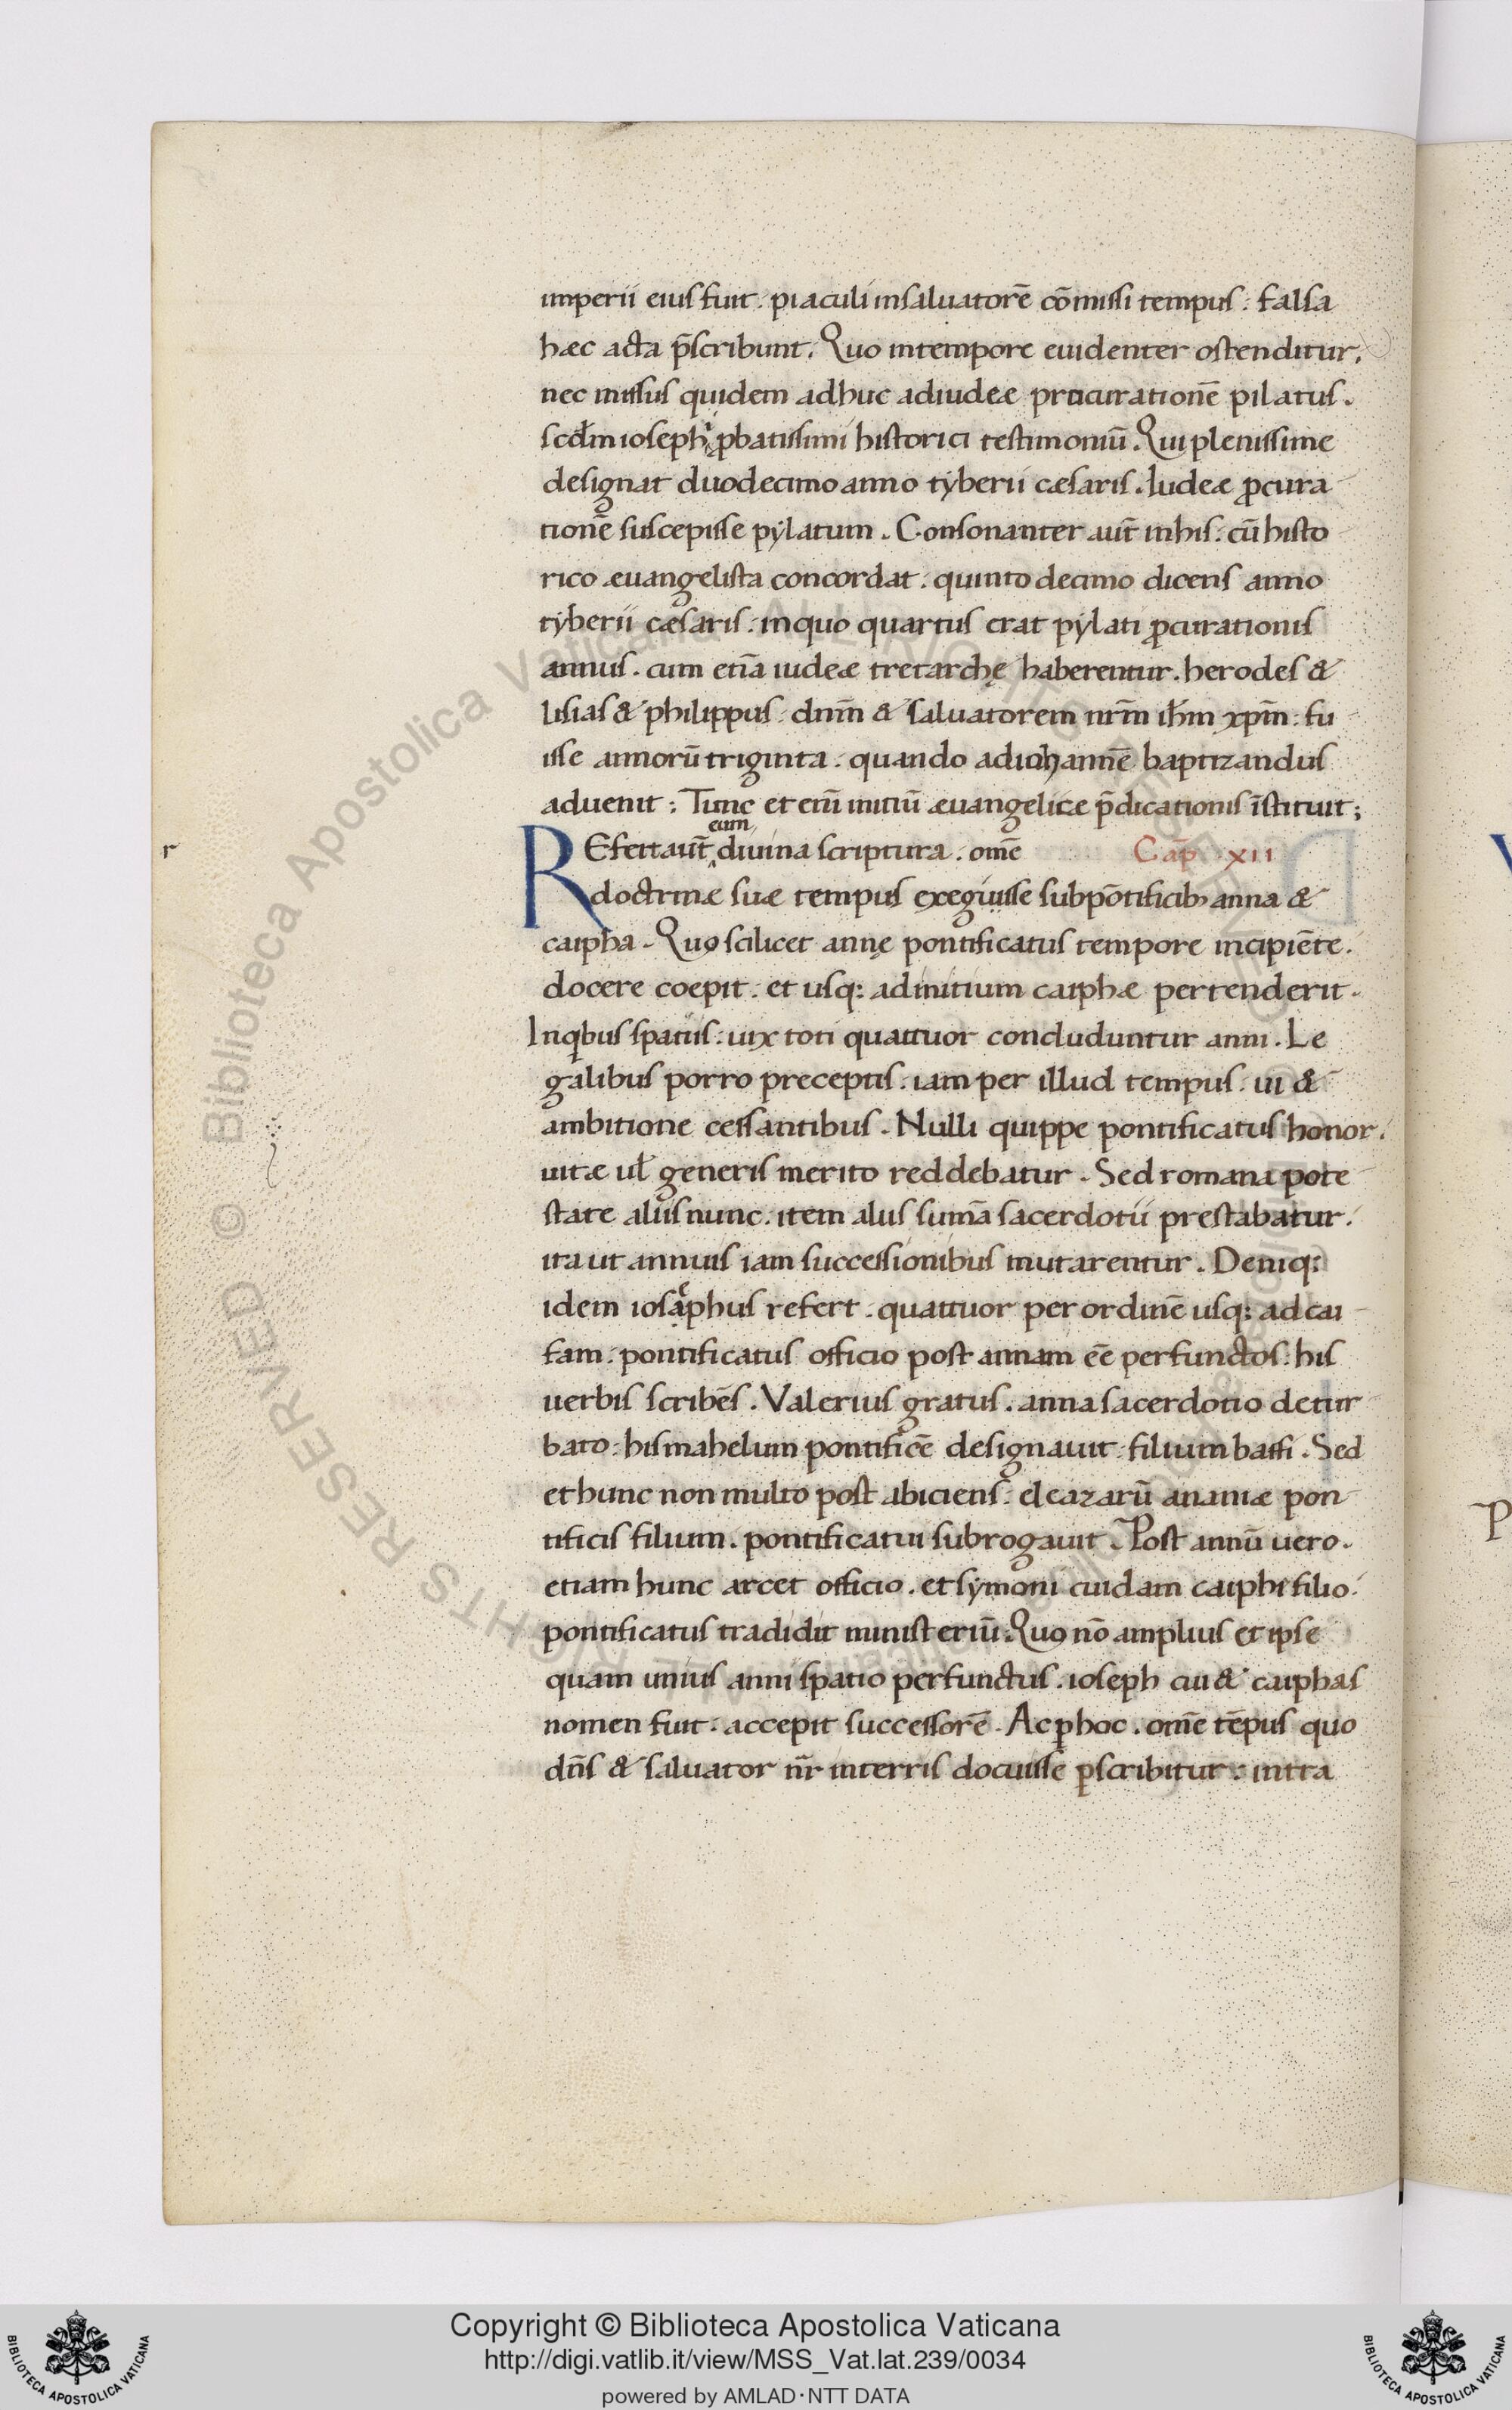 imperii eius fuit. piaculi insaluatorē cōmissi tempus. falsa
hæc acta p̄scribunt. Quo intempore euidenter ostenditur.
nec missus quidem adhuc adiudeæ procurationē pilatus.
scd̄m iosephi ꝓbatissimi historici testimoniū. Qui plenissime
designat duodecimo anno tyberii cæsaris. Iudeæ ꝓcura
tionē suscepisse pylatum. Consonanter aut̄ inhis. cū histo
rico æuangelista concordat. quinto decimo dicens anno
tyberii cæsaris. inquo quartus erat pylati ꝓcurationis
annus. cum etiā iudeæ tretarchę haberentur. herodes &
lisias & philippus. dnm̄ & saluatorem nrm̄ ihm̄ xpm̄. fu
isse annorū triginta. quando adiohannē baptizandus
aduenit: Tunc et eni̅ initiū æuangelicæ p̄dicationis īstituit;
eum
REfert aut̄ diuina scriptura. omē Cap̄ XII
doctrinæ suæ tempus exegiuisse subpōtificib; anna &
caipha. Quo scilicet annę pontificatus tempore incipiēte.
docere coepit. et usq; adinitium caiphæ pertenderit.
Inqibus spatiis. uix toti quattuor concluduntur anni. Le
galibus porro preceptis. iam per illud tempus. ui &
ambitione cessantibus. Nulli quippe pontificatus honor.
uitæ ul̄ generis merito reddebatur. Sed romana pote
state aliis nunc. item aliis sumā sacerdotii prestabatur.
ita ut annuis iam successionibus mutarentur. Deniq;
idem iosaephus refert. quattuor per ordinē usq; ad cai
fam. pontificatus officio post annam eē perfunctos. his
uerbis scribēs. Valerius gratus. anna sacerdotio detur
bato. hismahelum pontificē designauit. filium baffi. Sed
et hunc non multo post abiciens. eleazarū ananiæ pon
tificis filium. pontificatui subrogauit. Post annū uero.
etiam hunc arcet officio. et symoni cuidam caiphi filio.
pontificatus tradidit ministeriū. Quo nō amplius et ipse
quam unius anni spatio perfunctus. ioseph cui & caiphas
nomen fuit. accepit successorē. Ac ꝑ hoc. omē tēpus quo
dn̄s & saluator nr̄ interris docuisse ꝑscribitur. intra
r
P
© Biblioteca Apostolica Vaticana ALL RIGHTS RESERVED
Copyright © Biblioteca Apostolica Vaticana
http://digi.vatlib.it/view/MSS_Vat.lat.239/0034
powered by AMLAD·NTT DATA
BIBLIOTECA APOSTOLICA VATICANA
BIBLIOTECA APOSTOLICA VATICANA